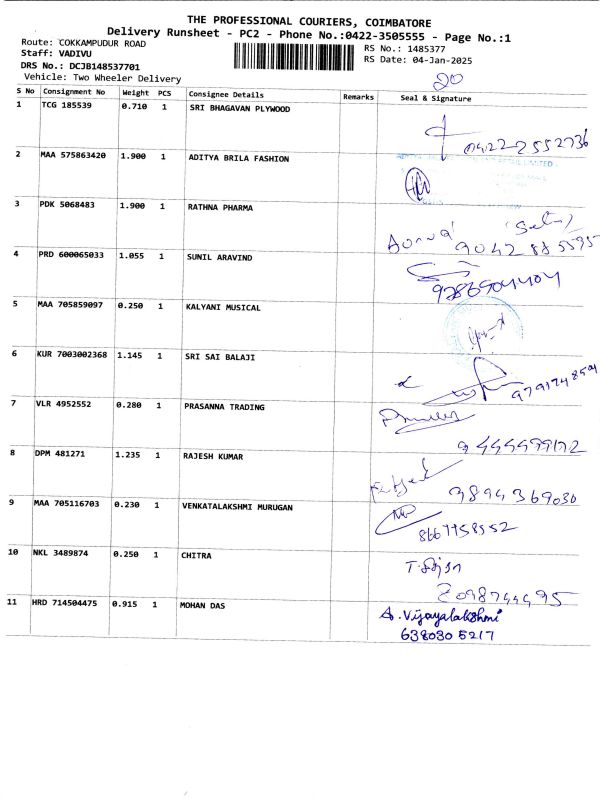 THE PROFESSIONAL COURIERS, COIMBATORE
Delivery Runsheet - PC2 - Phone No.:0422-3505555 - Page No.:1
Route: COKKAMPUDUR ROAD
RS No.: 1485377
Staff: VADIVU
RS Date: 04-Jan-2025
DRS No.: DCJB148537701
Vehicle: Two Wheeler Delivery
20
S No Consignment No Weight PCS Consignee Details Remarks Seal & Signature
1 TCG 185539 0.710 1 SRI BHAGAVAN PLYWOOD
0422-2552736
2 MAA 575863420 1.900 1 ADITYA BRILA FASHION
3 PDK 5068483 1.900 1 RATHNA PHARMA
4 PRD 600065033 1.055 1 SUNIL ARAVIND
5 MAA 705859097 0.250 1 KALYANI MUSICAL
6 KUR 7003002368 1.145 1 SRI SAI BALAJI
7 VLR 4952552 0.280 1 PRASANNA TRADING
8 DPM 481271 1.235 1 RAJESH KUMAR
9894369030
9 MAA 705116703 0.230 1 VENKATALAKSHMI MURUGAN
10 NKL 3489874 0.250 1 CHITRA
11 HRD 714504475 0.915 1 MOHAN DAS
A. Vijayalakshmi
638030 5217